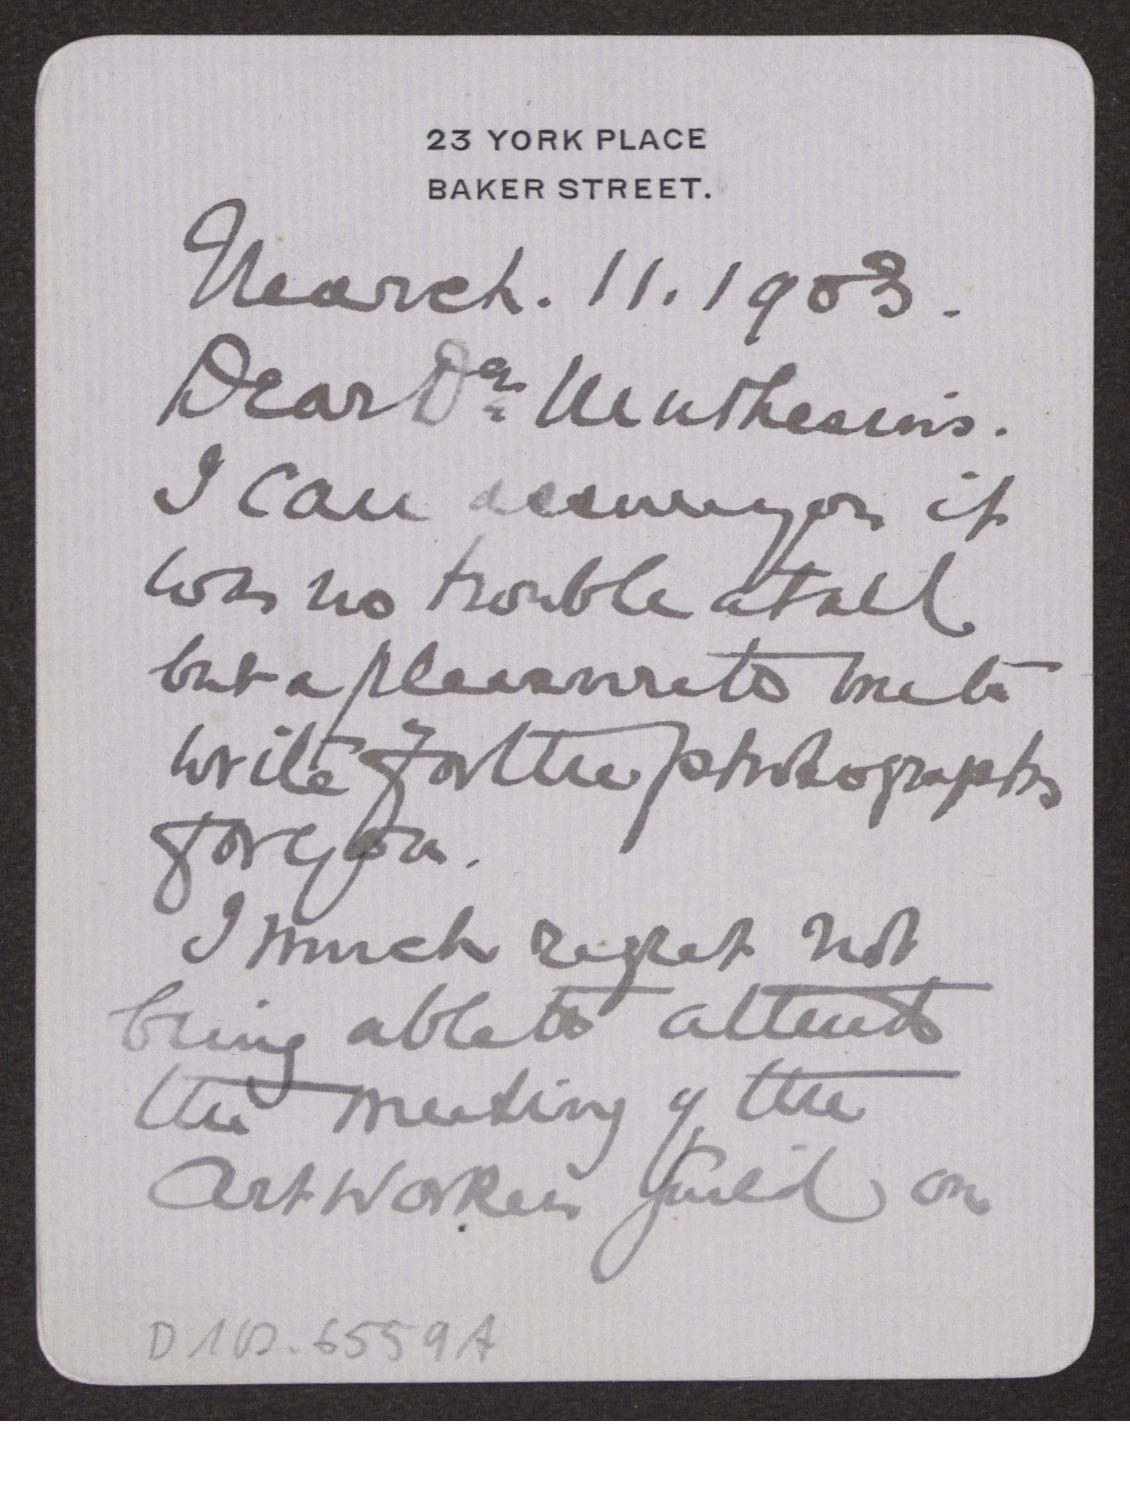 23 YORK PLACE
BAKER STREET.
March. 11. 1903.
Dear Dr. Muthesius.
I can assure you it
was no trouble at all
but a pleasure to me to
write for the photographs
for you.
I much regret not
being able to attend
the meeting of the
Art Workers Guild on
D 102-6559A